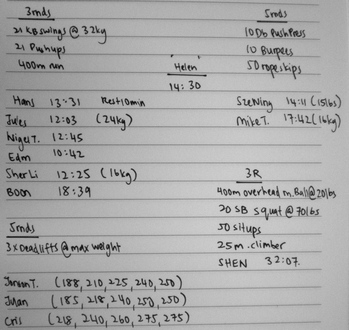 3rnds
21 KB swings @ 32kg
21 Pushups
400m run
5rnds
10 Db Push Press
10 Burpees
50 ropeskips
"Helen"
14:30
Hans 13:31 Rest 10min
Jules 12:03 (24kg)
Nigel T. 12:45
Edm 10:42
Sher Li 12:25 (16kg)
Boon 18:39
SzeNing 14:11 (15lbs)
Mike T. 17:42 (16kg)
3R
400m overhead m.Ball @ 20lbs
20 SB squat @ 70lbs
50 situps
25 m.climber
SHEN 32:07
5rnds
3x Deadlifts @ max weight
T. (188, 210, 225, 240, 250)
Juan (185, 218, 240, 250, 250)
Cris (218, 240, 260, 275, 275)